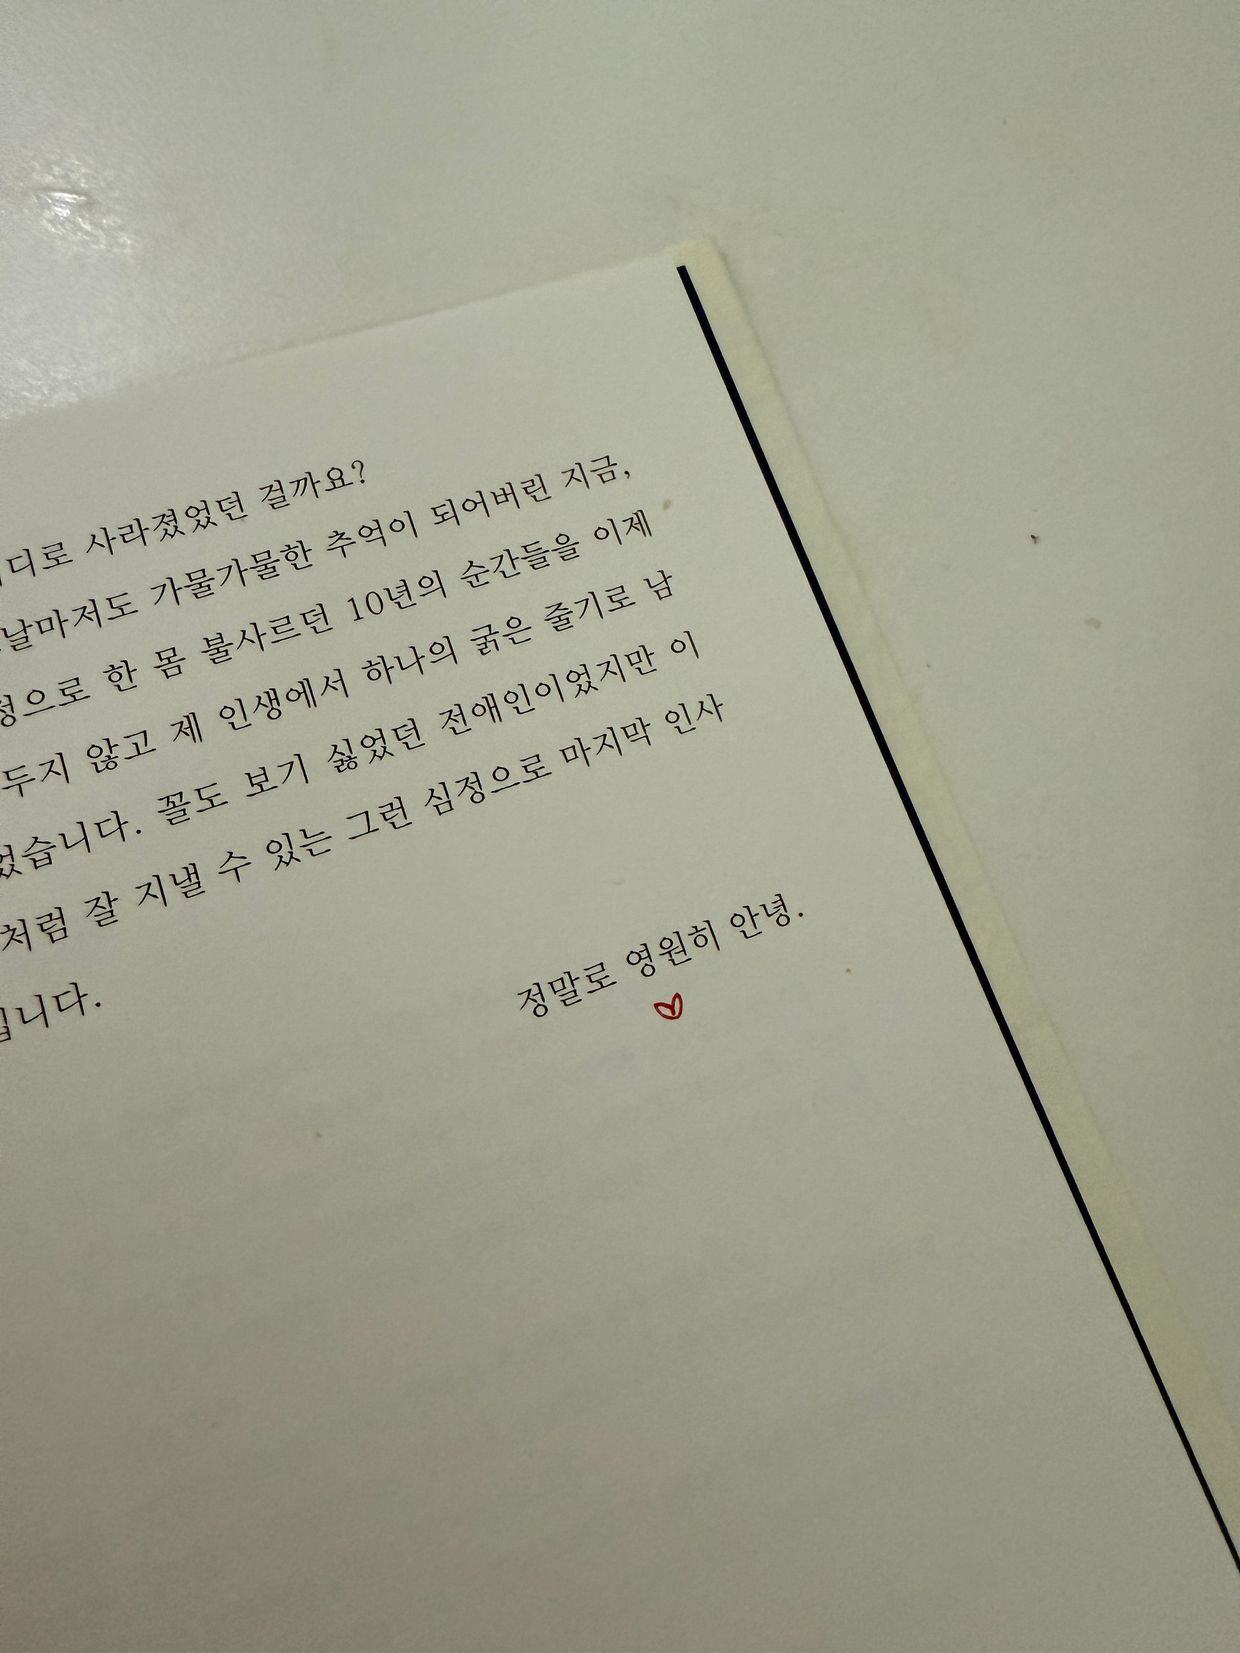 디로 사라졌었던 걸까요?
날마저도 가물가물한 추억이 되어버린 지금,
정으로 한 몸 불사르던 10년의 순간들을 이제
두지 않고 제 인생에서 하나의 굵은 줄기로 남
었습니다. 꼴도 보기 싫었던 전애인이었지만 이
처럼 잘 지낼 수 있는 그런 심정으로 마지막 인사
입니다.
정말로 영원히 안녕.